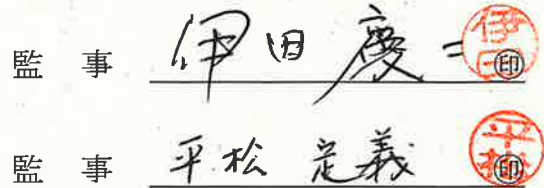 監 事 伊田慶二 ㊞
監 事 平松定義 ㊞